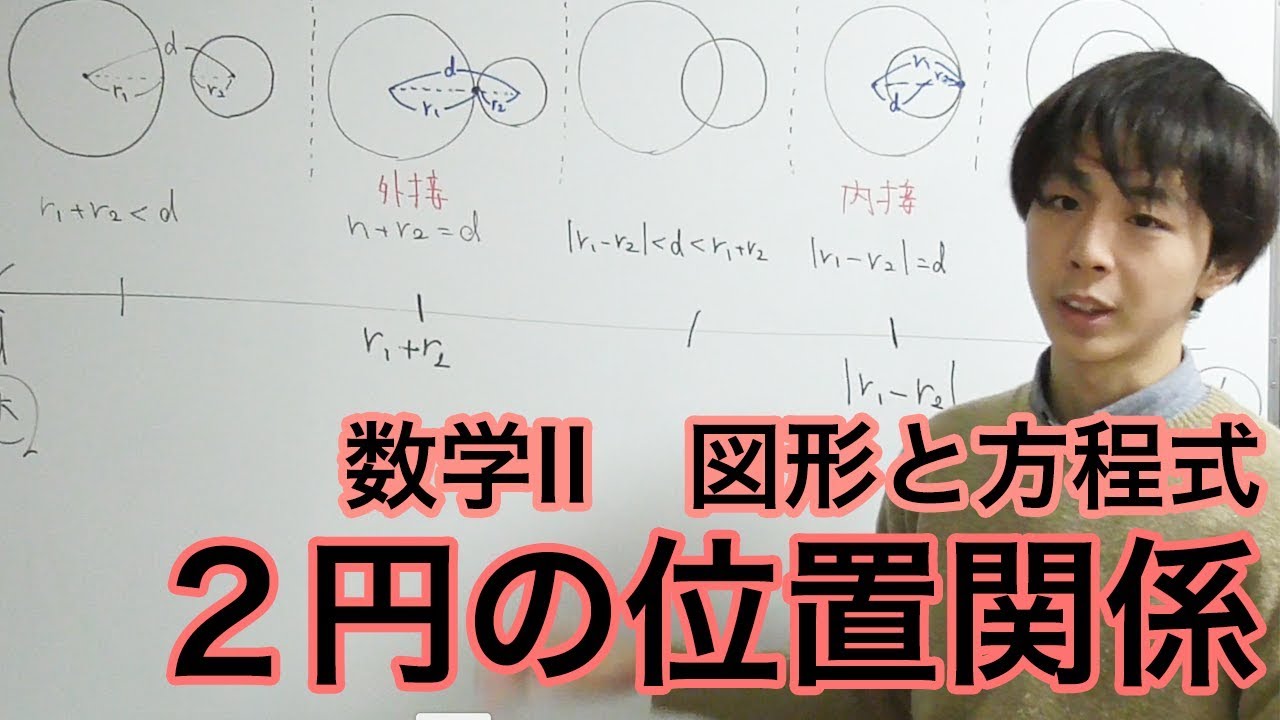 d
r₁
r₂
r₁+r₂<d
d
r₁
r₂
外接
r₁+r₂=d
|r₁-r₂|<d<r₁+r₂
r₁
r₂
d
内接
|r₁-r₂|=d
r₁+r₂
|r₁-r₂|
数学II 図形と方程式
２円の位置関係